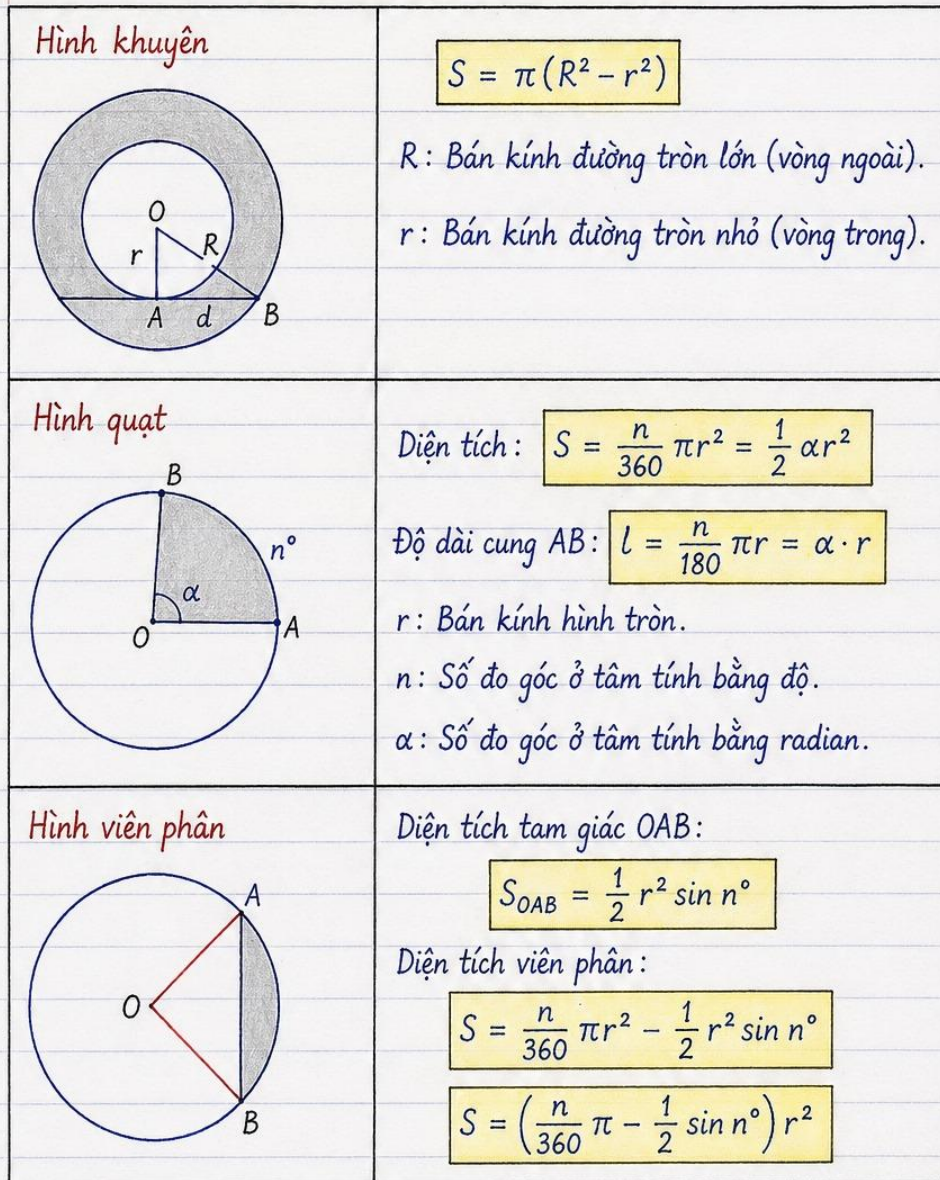 Hình khuyên
S = π(R² – r²)
R: Bán kính đường tròn lớn (vòng ngoài).
r: Bán kính đường tròn nhỏ (vòng trong).
O
r
R
A
d
B
Hình quạt
Diện tích: S = n/360 πr² = 1/2 αr²
Độ dài cung AB: l = n/180 πr = α · r
r: Bán kính hình tròn.
n: Số đo góc ở tâm tính bằng độ.
α: Số đo góc ở tâm tính bằng radian.
B
n°
α
O
A
Hình viên phân
Diện tích tam giác OAB:
S_OAB = 1/2 r² sin n°
Diện tích viên phân:
S = n/360 πr² – 1/2 r² sin n°
S = (n/360 π – 1/2 sin n°) r²
A
O
B